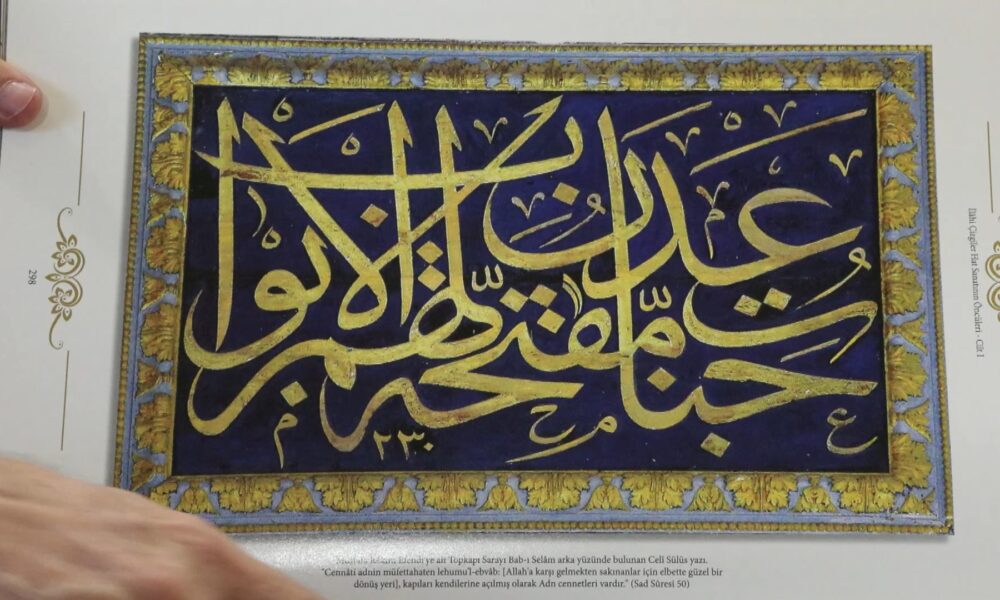 جنات عدن مفتحة لهم الأبواب
٢٣٠
298
İlâhî Çizgiler Hat Sanatının Öncüleri - Cilt I
Efendi'ye ait Topkapı Sarayı Bab-ı Selâm arka yüzünde bulunan Celî Sülüs yazı.
"Cennâti adnin müfettahaten lehumu'l-ebvâb: [Allah'a karşı gelmekten sakınanlar için elbette güzel bir
dönüş yeri], kapıları kendilerine açılmış olarak Adn cennetleri vardır." (Sad Sûresi 50)